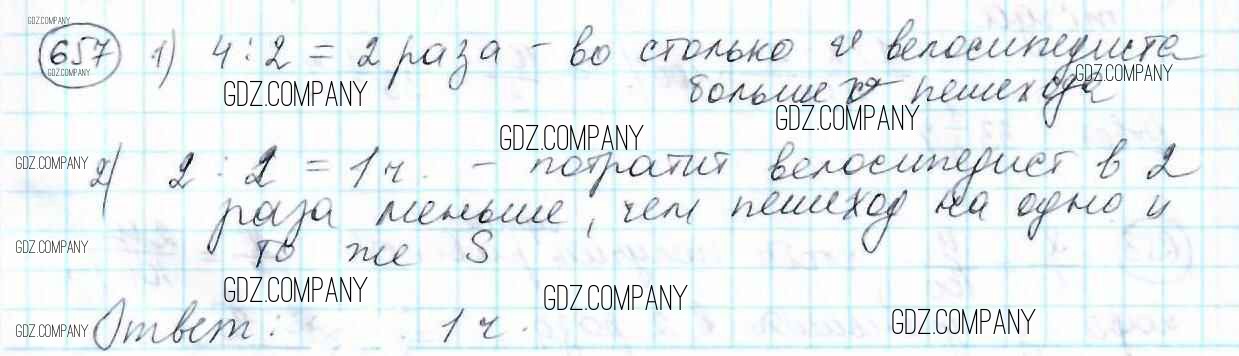 GDZ.COMPANY
657 1) 4 : 2 = 2 раза – во столько v велосипедиста
GDZ.COMPANY GDZ.COMPANY
больше v пешехода
GDZ.COMPANY GDZ.COMPANY
GDZ.COMPANY
GDZ.COMPANY 2) 2 : 2 = 1 ч. – потратит велосипедист в 2
раза меньше, чем пешеход на одно и
GDZ.COMPANY то же S
GDZ.COMPANY GDZ.COMPANY
GDZ.COMPANY Ответ: 1 ч. GDZ.COMPANY